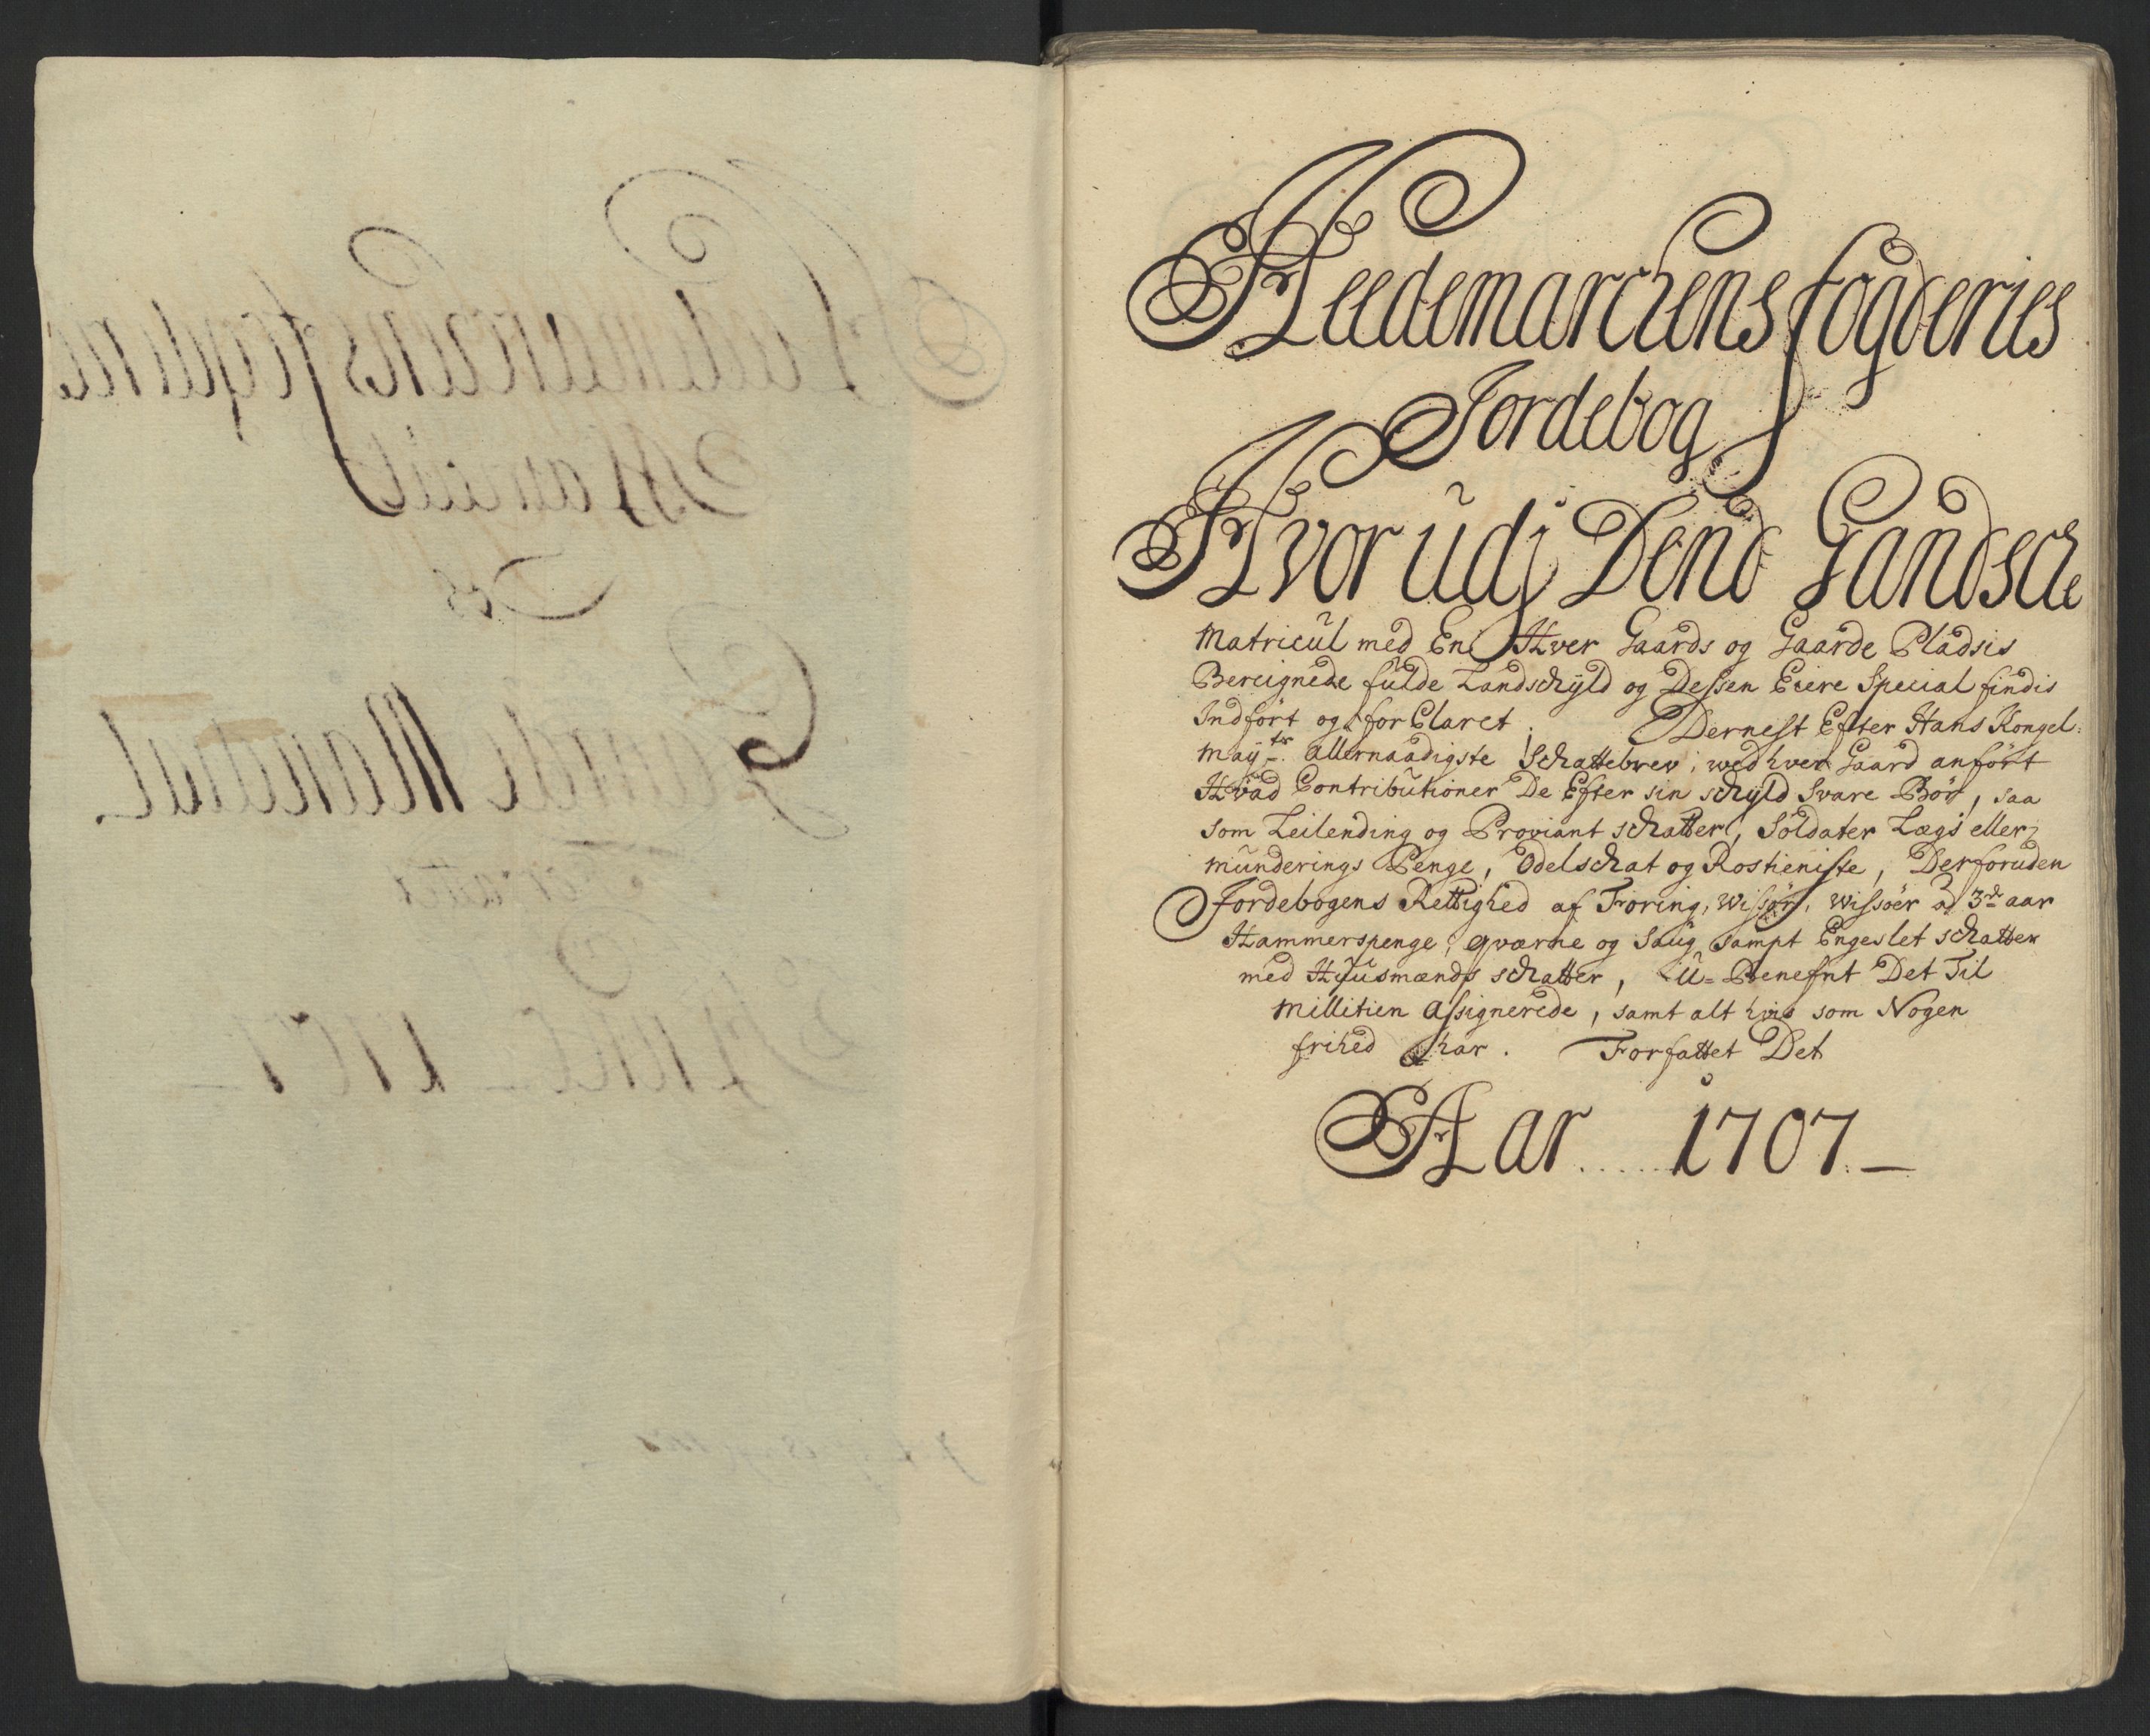 Heedemarchens fogderies
Jordebog
Hvorudj Dend Gandsche
Matricul med En Hver Gaards og Gaarde Pladsis
Bereignede fulde Landschÿld og Dessen Eiere Special findis
Indfört og forClaret. Dernest Efter Hans Kongel:
Maÿ:ts allernaadigste Schattebrev, wed hver Gaard anfört
Hvad Contributioner De Efter sin schÿld Svare Bör, saa
som Leilending og Proviant schatter, Soldater Lægs eller
munderings Penge, Odelschat og Rostieniste, Derforuden
Jordebogens Rettighed af Foring, wissör, wissöer a 3de aar
Hammerspenge, qværne og Saug sampt Engeslet schatter
med Huusmænds schatter, U-Benefnt Det Til
Millitien Assignerede, samt alt hvis som Nogen
frihed har. Forfattet Det
Aar ..... 1707 —